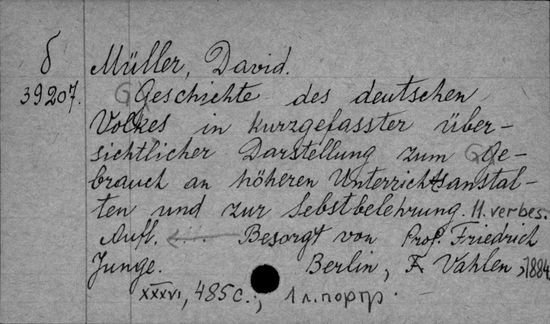 б Müller, David.
39207. Geschichte des deutschen
Volkes in kurzgefasster über-
sichtlicher Darstellung zum Ge-
brauch an höheren Unterrichtsanstal-
ten und zur Selbstbelehrung. 11. verbes.
Aufl. Besorgt von Prof. Friedrich
Junge. Berlin, F. Vahlen, 1884
XXXVI, 485 с., 1 л. портр.